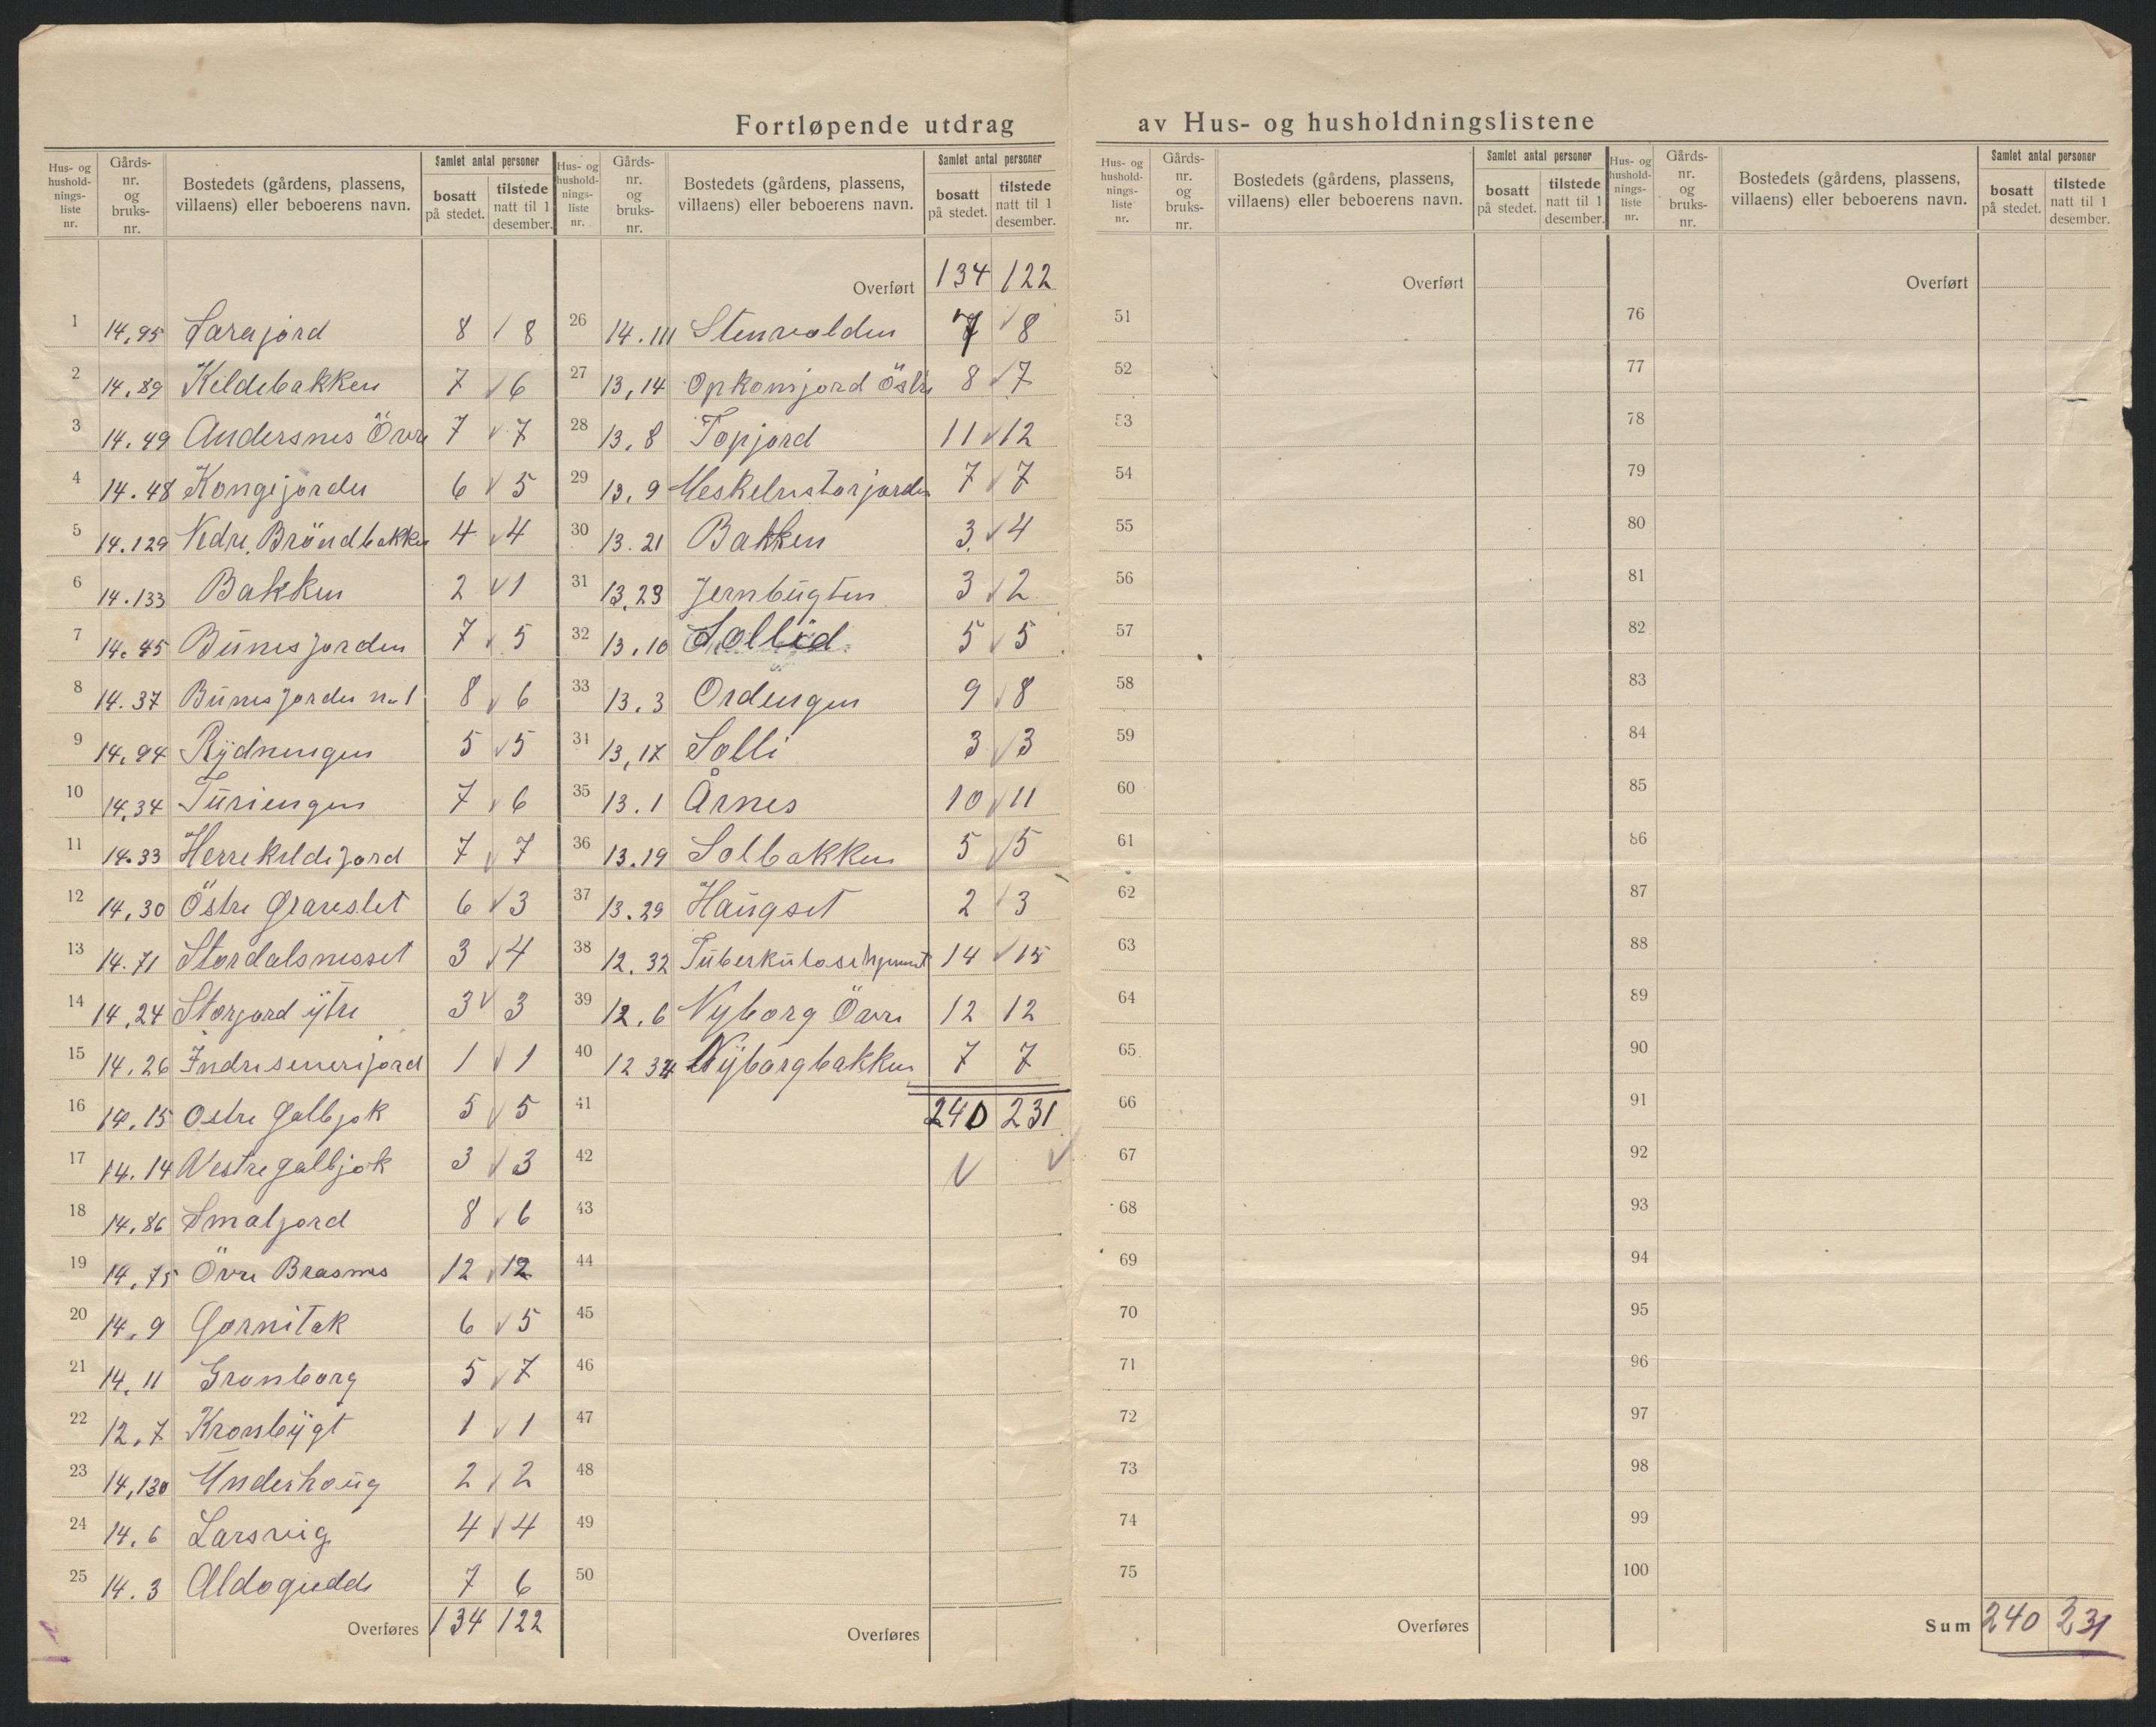 Fortløpende utdrag av Hus- og husholdningslistene
Hus- og husholdnings-liste nr. | Gårds-nr. og bruks-nr. | Bostedets (gårdens, plassens, villaens) eller beboerens navn. | Samlet antal personer | bosatt på stedet. | tilstede natt til 1 desember.
1 14,95 Sarajord 8 8
2 14.89 Kildebakken 7 6
3 14.49 Andersnes Övre 7 7
4 14.48 Kongejorden 6 5
5 14.129 Nedre Bröndbakken 4 4
6 14.133 Bakken 2 1
7 14.45 Bunesjorden 7 5
8 14.37 Bunesjorden no 1 8 6
9 14.94 Rydningen 5 5
10 14.34 Turiengen 7 6
11 14.33 Herrekildejord 7 7
12 14,30 Östre 6 3
13 14.71 Stordalsnesset 3 4
14 14,24 Storjord ytre 3 3
15 14.26 1 1
16 14.15 Ostre Galbjok 5 5
17 14.14 Vestre Galbjok 3 3
18 14.86 Smaljord 8 6
19 14.75 Övre Brasnes 12 12
20 14.9 Gornitak 6 5
21 14.11 Gronborg 5 7
22 12.7 Kronbygt 1 1
23 14,130 Underhaug 2 2
24 14.6 Larsvig 4 4
25 14.3 Aldogudde 7 6
Overføres 134 122
Hus- og husholdnings-liste nr. | Gårds-nr. og bruks-nr. | Bostedets (gårdens, plassens, villaens) eller beboerens navn. | Samlet antal personer | bosatt på stedet. | tilstede natt til 1 desember.
Overført 134 122
26 14.111 Stenvolden 7 8
27 13,14 Opkomjord Östre 8 7
28 13.8 Topjord 11 12
29 13.9 Meskelvstorjorden 7 7
30 13.21 Bakken 3 4
31 13.23 Jernbugten 3 2
32 13.10 Sollid 5 5
33 13.3 Ordengen 9 8
34 13,17 Solli 3 3
35 13.1 Årnes 10 11
36 13.19 Solbakken 5 5
37 13.29 Haugset 2 3
38 12.32 Tuberkulosehjemmet 14 15
39 12.6 Nyborg Övre 12 12
40 12 34 Nyborgbakken 7 7
41 240 231
42
43
44
45
46
47
48
49
50
Overføres
Hus- og husholdnings-liste nr. | Gårds-nr. og bruks-nr. | Bostedets (gårdens, plassens, villaens) eller beboerens navn. | Samlet antal personer | bosatt på stedet. | tilstede natt til 1 desember.
Overført
51
52
53
54
55
56
57
58
59
60
61
62
63
64
65
66
67
68
69
70
71
72
73
74
75
Overføres
Hus- og husholdnings-liste nr. | Gårds-nr. og bruks-nr. | Bostedets (gårdens, plassens, villaens) eller beboerens navn. | Samlet antal personer | bosatt på stedet. | tilstede natt til 1 desember.
Overført
76
77
78
79
80
81
82
83
84
85
86
87
88
89
90
91
92
93
94
95
96
97
98
99
100
Sum 240 231